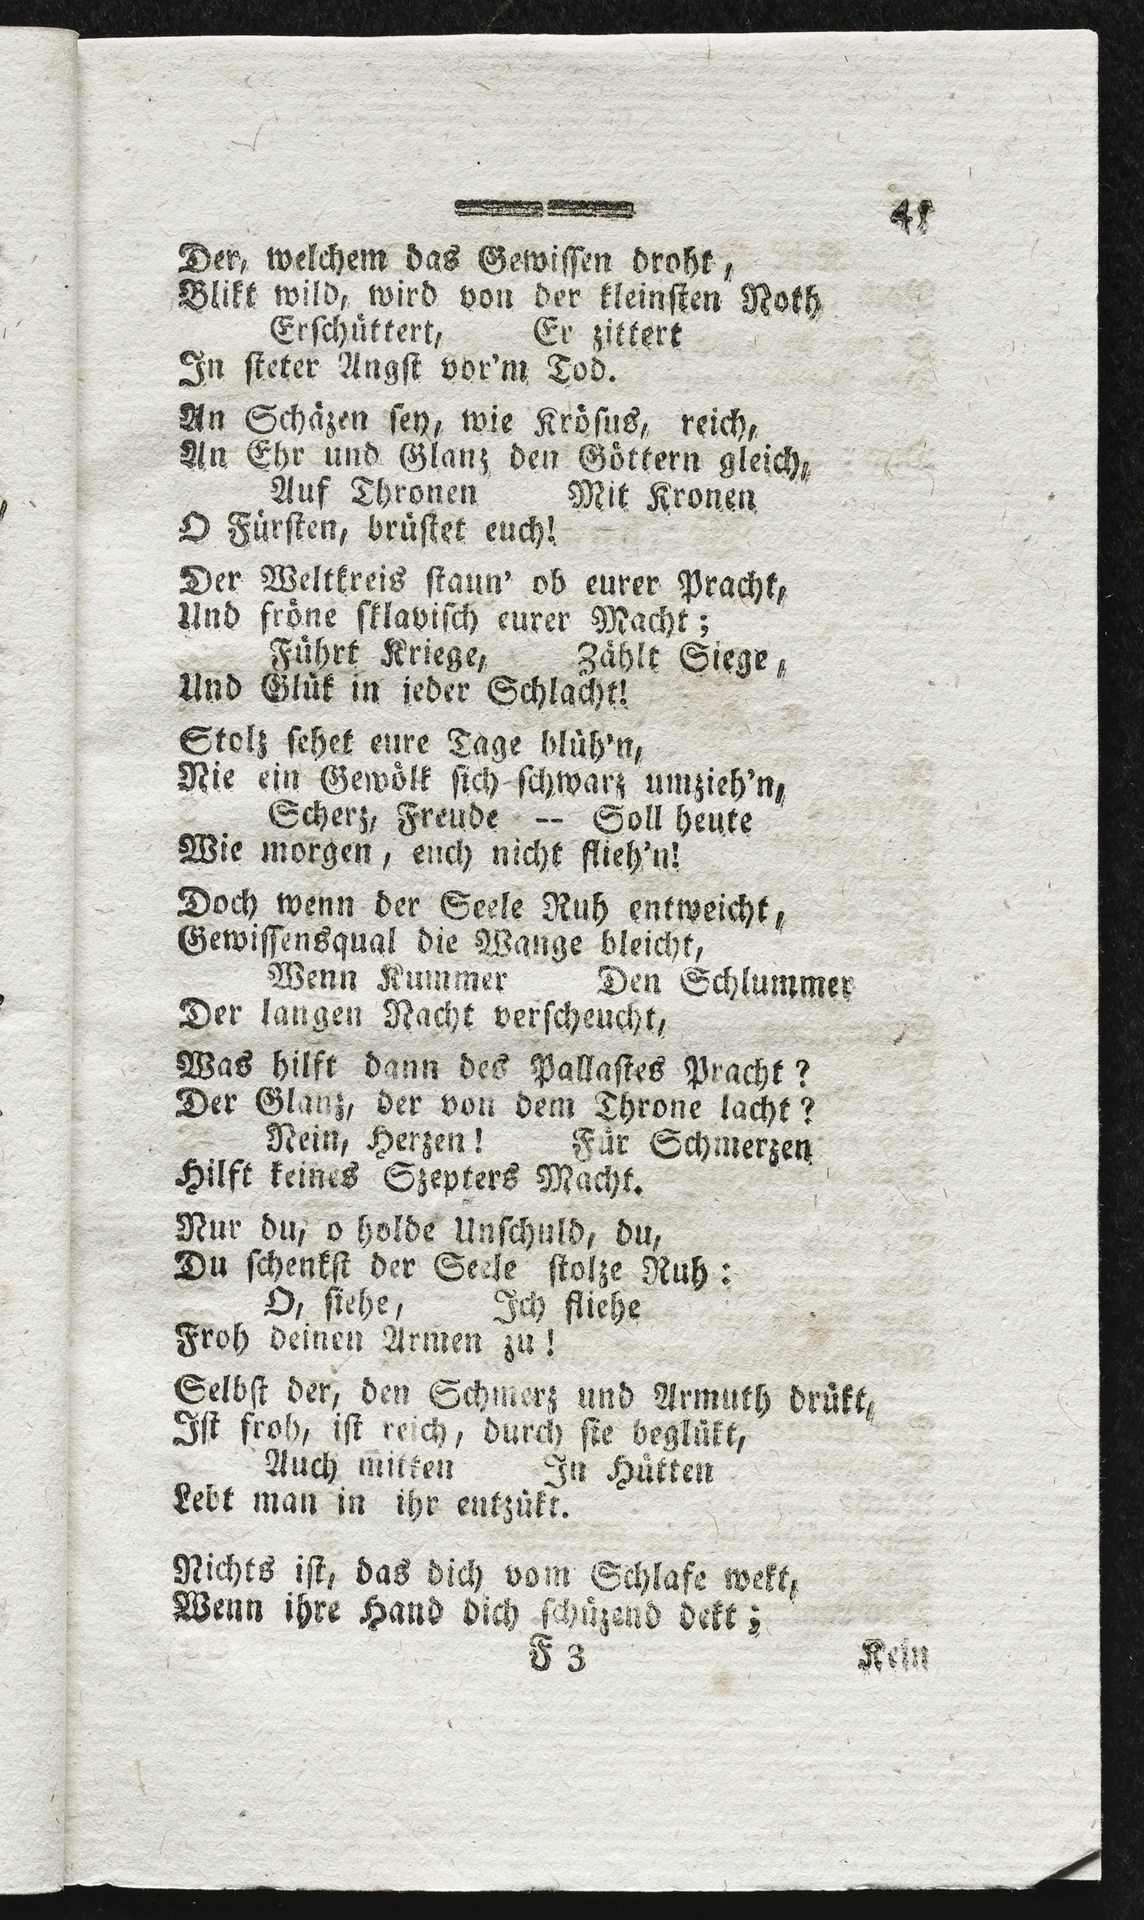 Der, welchem das Gewissen droht,
Blikt wild, wird von der kleinsten Noth
Erschüttert, Er zittert
In steter Angst vor'm Tod.
An Schäzen sey, wie Krösus, reich,
An Ehr und Glanz den Göttern gleich,
Auf Thronen Mit Kronen
O Fürsten, brüstet euch!
Der Weltkreis staun' ob eurer Pracht,
Und fröne sklavisch eurer Macht;
Führt Kriege, Zählt Siege,
Und Glük in jeder Schlacht!
Stolz sehet eure Tage blüh'n,
Nie ein Gewölk sich schwarz umzieh'n,
Scherz, Freude -- Soll heute
Wie morgen, euch nicht flieh'n!
Doch wenn der Seele Ruh entweicht,
Gewissensqual die Wange bleicht,
Wenn Kummer Den Schlummer
Der langen Nacht verscheucht,
Was hilft dann des Pallastes Pracht?
Der Glanz, der von dem Throne lacht?
Nein, Herzen! Für Schmerzen
Hilft keines Szepters Macht.
Nur du, o holde Unschuld, du,
Du schenkst der Seele stolze Ruh:
O, siehe, Ich fliehe
Froh deinen Armen zu!
Selbst der, den Schmerz und Armuth drükt,
Ist froh, ist reich, durch sie beglükt,
Auch mitten In Hütten
Lebt man in ihr entzükt.
Nichts ist, das dich vom Schlafe wekt,
Wenn ihre Hand dich schüzend dekt;
F 3 Kein